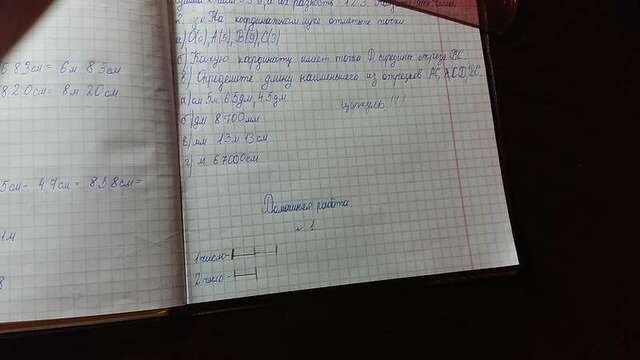 683см = 6м 83см
820см = 8м 20см
5см - 47см = 858см =
1м
8
2. а) На координатном луче отметьте точки
а) О(0), А(5), В(9), С(3)
б) Какую координату имеет точка D середина отрезка ВС.
в) Определите длину наименьшего из отрезков АС, CD, ВС.
а) см 5м. 65дм, 45дм
б) дм 8700мм
в) мм 13м 13см
г) м 67000см
Домашняя работа.
№ 1
1 число-
2 число-